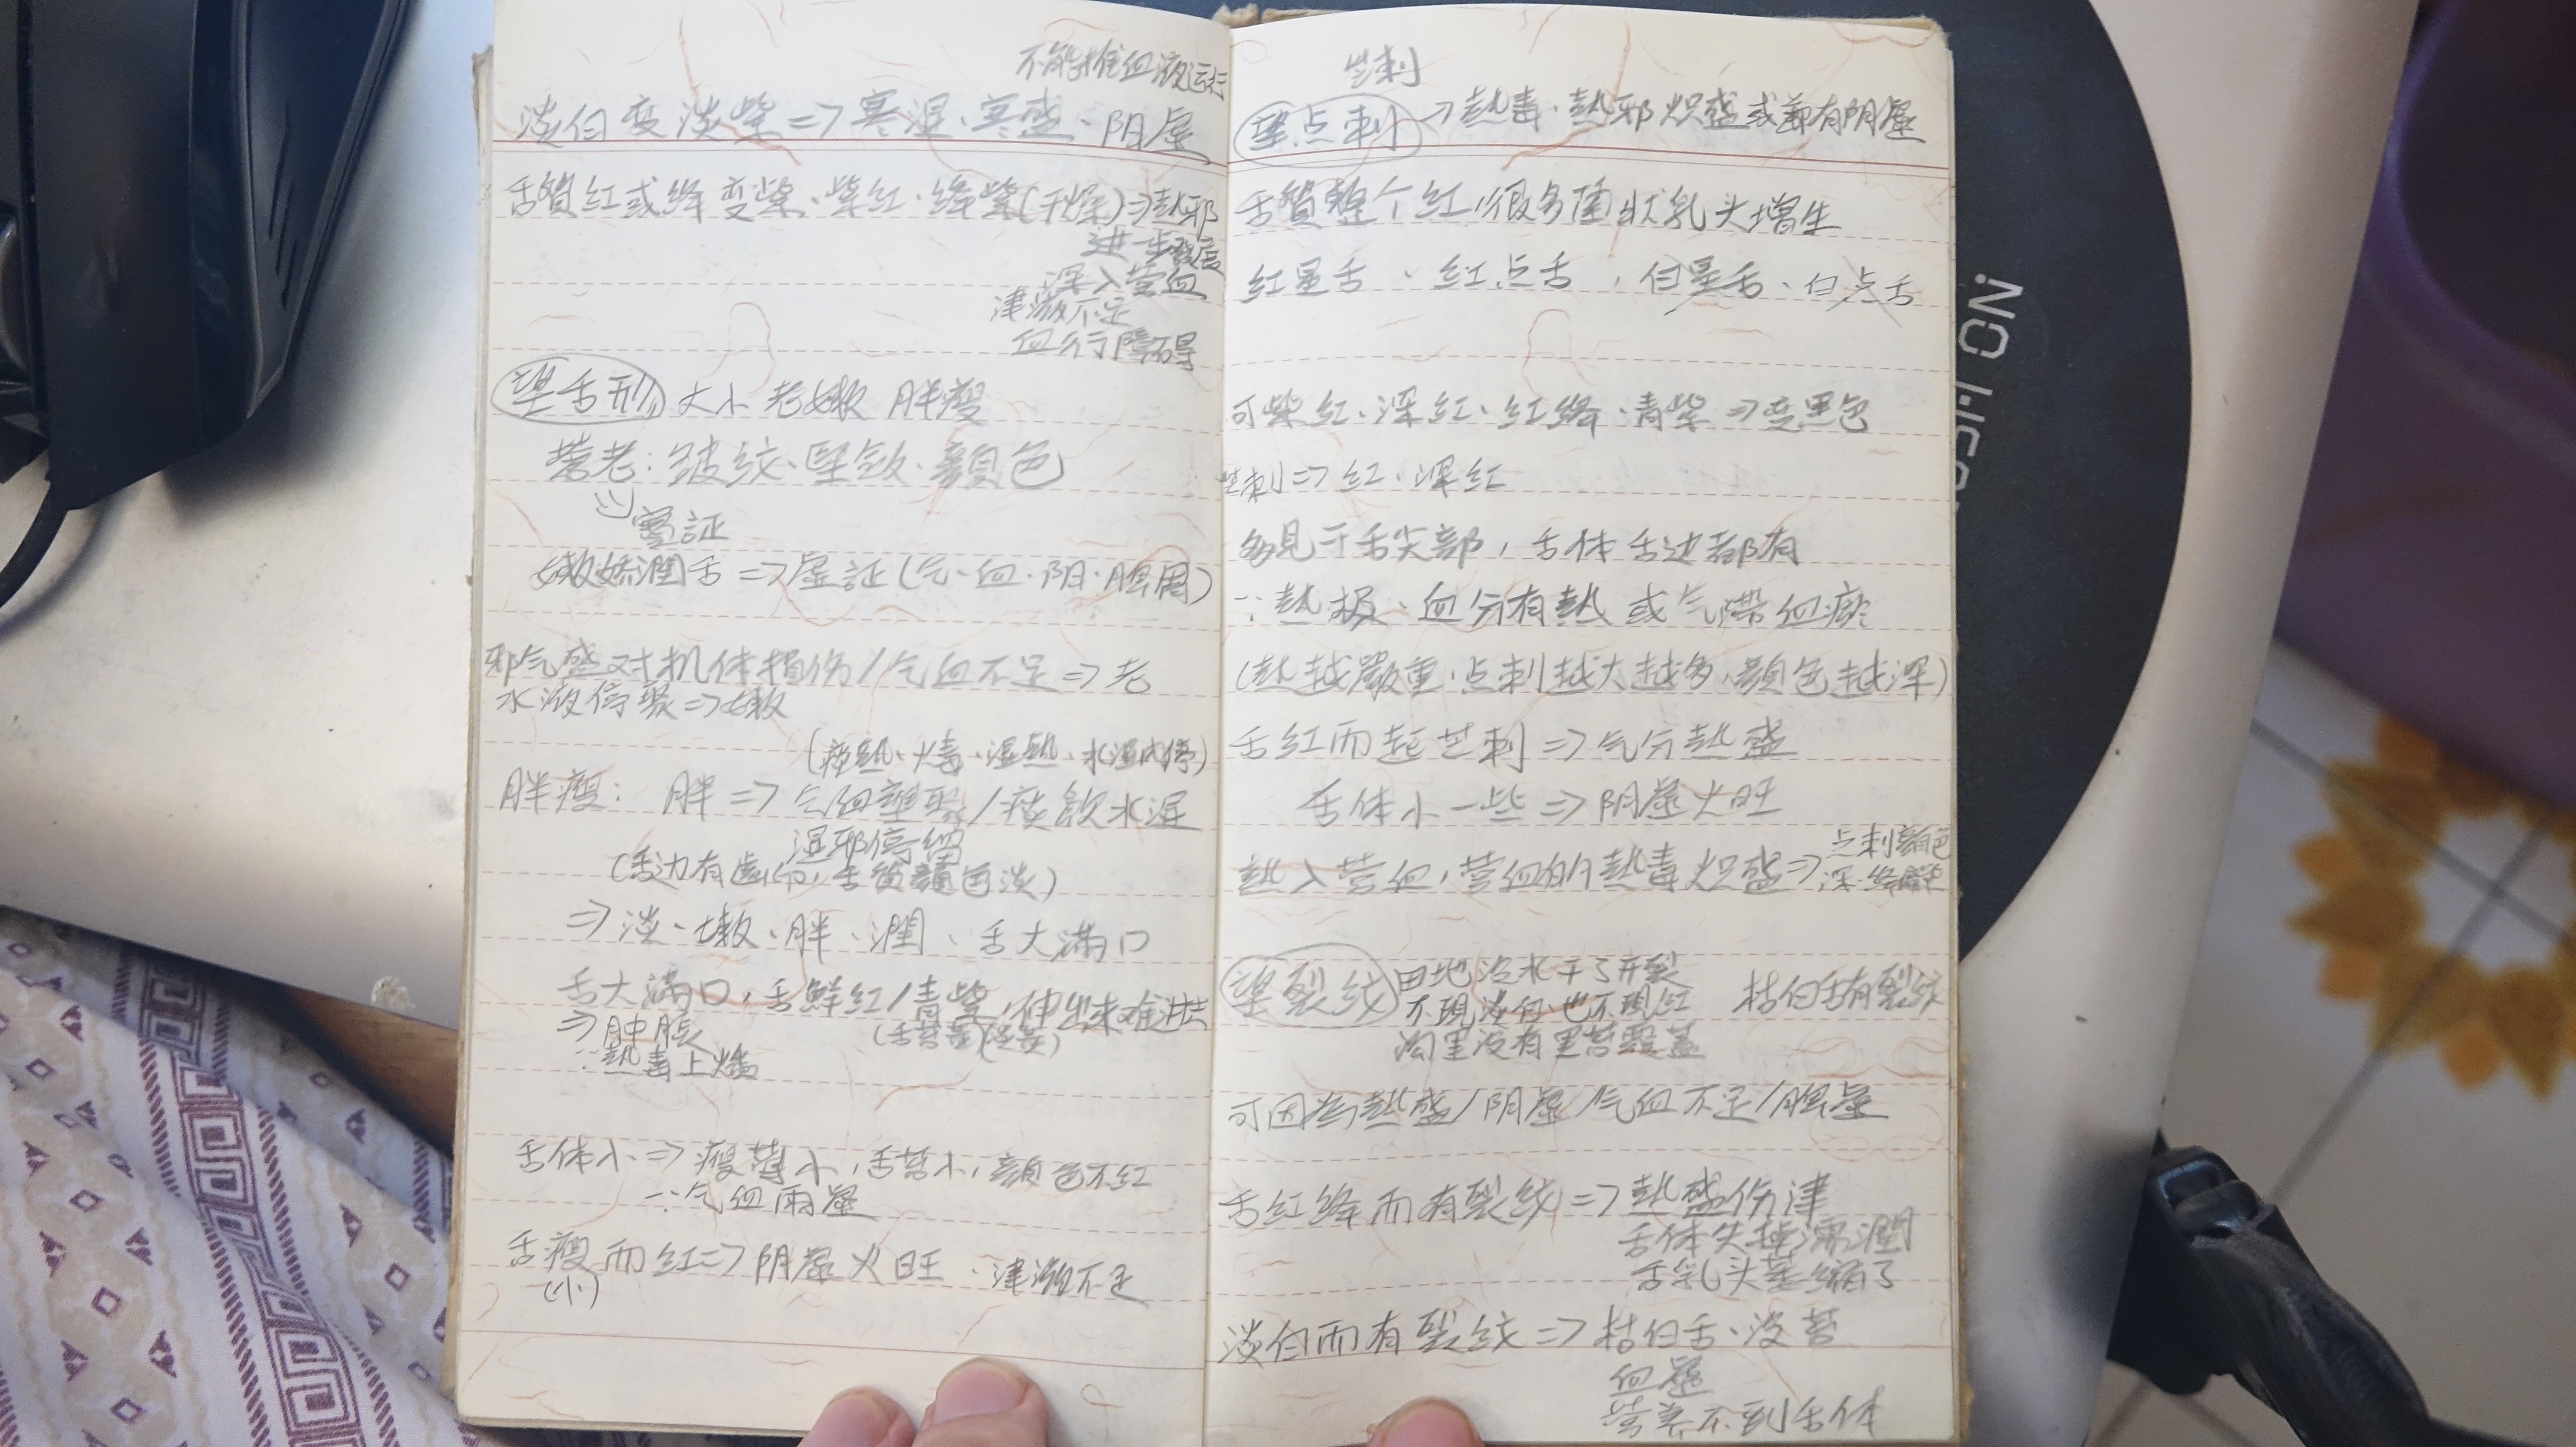 不能推血液运行
淡白变淡紫⇒寒湿、寒盛、阴虚
舌質红或绛变紫、紫红、绛紫(干燥)⇒热邪
进一步發展
深入营血
津液不足
血行障碍
望舌形 大小老嫩 胖瘦
蒼老:皱纹、坚敛、颜色
實証
嫩娇潤舌⇒虚証(气、血、阴、陽)
邪气盛对机体损伤/气血不足⇒老
水液停聚⇒嫩
(痰熱、火毒、湿热、水湿内停)
胖瘦: 胖⇒气血壅聚/痰飲水湿
湿邪停
(舌边有齒印,舌質顏色淡)
⇒淡、嫩、胖、潤、舌大滿口
舌大滿口,舌鮮红/青紫,伸出来难
⇒肿脹 (舌苔黄
∵熱毒上
舌体小⇒瘦薄小,舌苔小,顏色不红
∵气血兩虚
舌瘦而红⇒阴虚火旺、津液不足
(小)
芒刺
望点刺 →热毒、热邪炽盛或兼有阴虚
舌質整个红,很多菌状乳头增生
红星舌、红点舌,白星舌、白点舌
可紫红、深红、红绛、青紫⇒变黑色
芒刺⇒红、深红
多見于舌尖部,舌体舌边都有
∵热极、血分有熱或气滞血瘀
(热越嚴重、点刺越大越多,顏色越深)
舌红而起芒刺⇒气分热盛
舌体小一些⇒阴虚火旺
热入营血,营血的热毒炽盛⇒点刺顏色
深、绛
望裂纹 田地没水干了开裂 枯白舌有裂纹
不現淡白也不現红
沟里没有
可因为熱盛/阴虚/气血不足/陽虚
舌红绛而有裂纹⇒热盛伤津
舌体失掉濡潤
舌乳头萎缩了
淡白而有裂纹⇒枯白舌、没苔
血虚
营养不到舌体